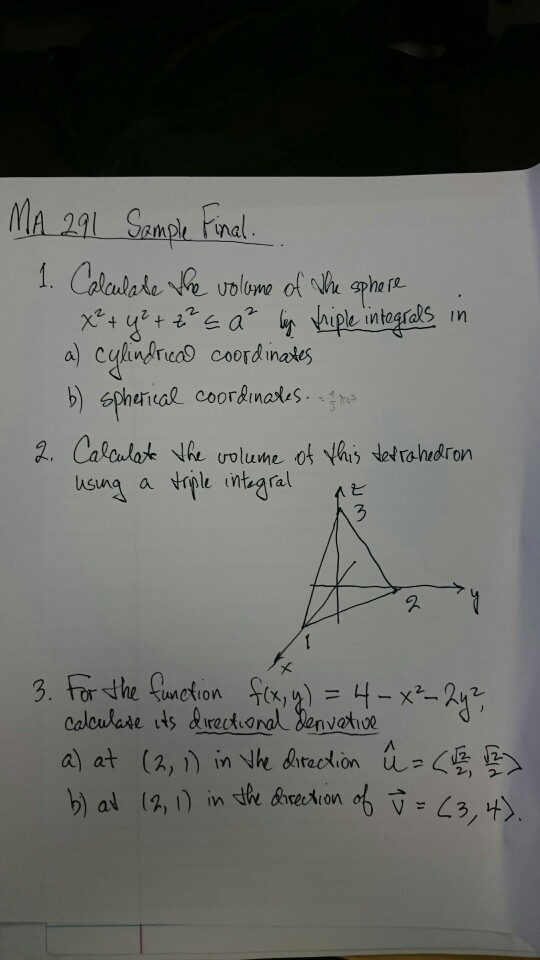 MA 291 Sample Final.
1. Calculate the volume of the sphere
x² + y² + z² ≤ a² by triple integrals in
a) cylindrical coordinates
b) spherical coordinates.
2. Calculate the volume of this tetrahedron
using a triple integral
z
3
2
y
1
x
3. For the function f(x,y) = 4 - x² - 2y²,
calculate its directional derivative
a) at (2, 1) in the direction û = <√2/2, √2/2>
b) at (2, 1) in the direction of v⃗ = <3, 4>.